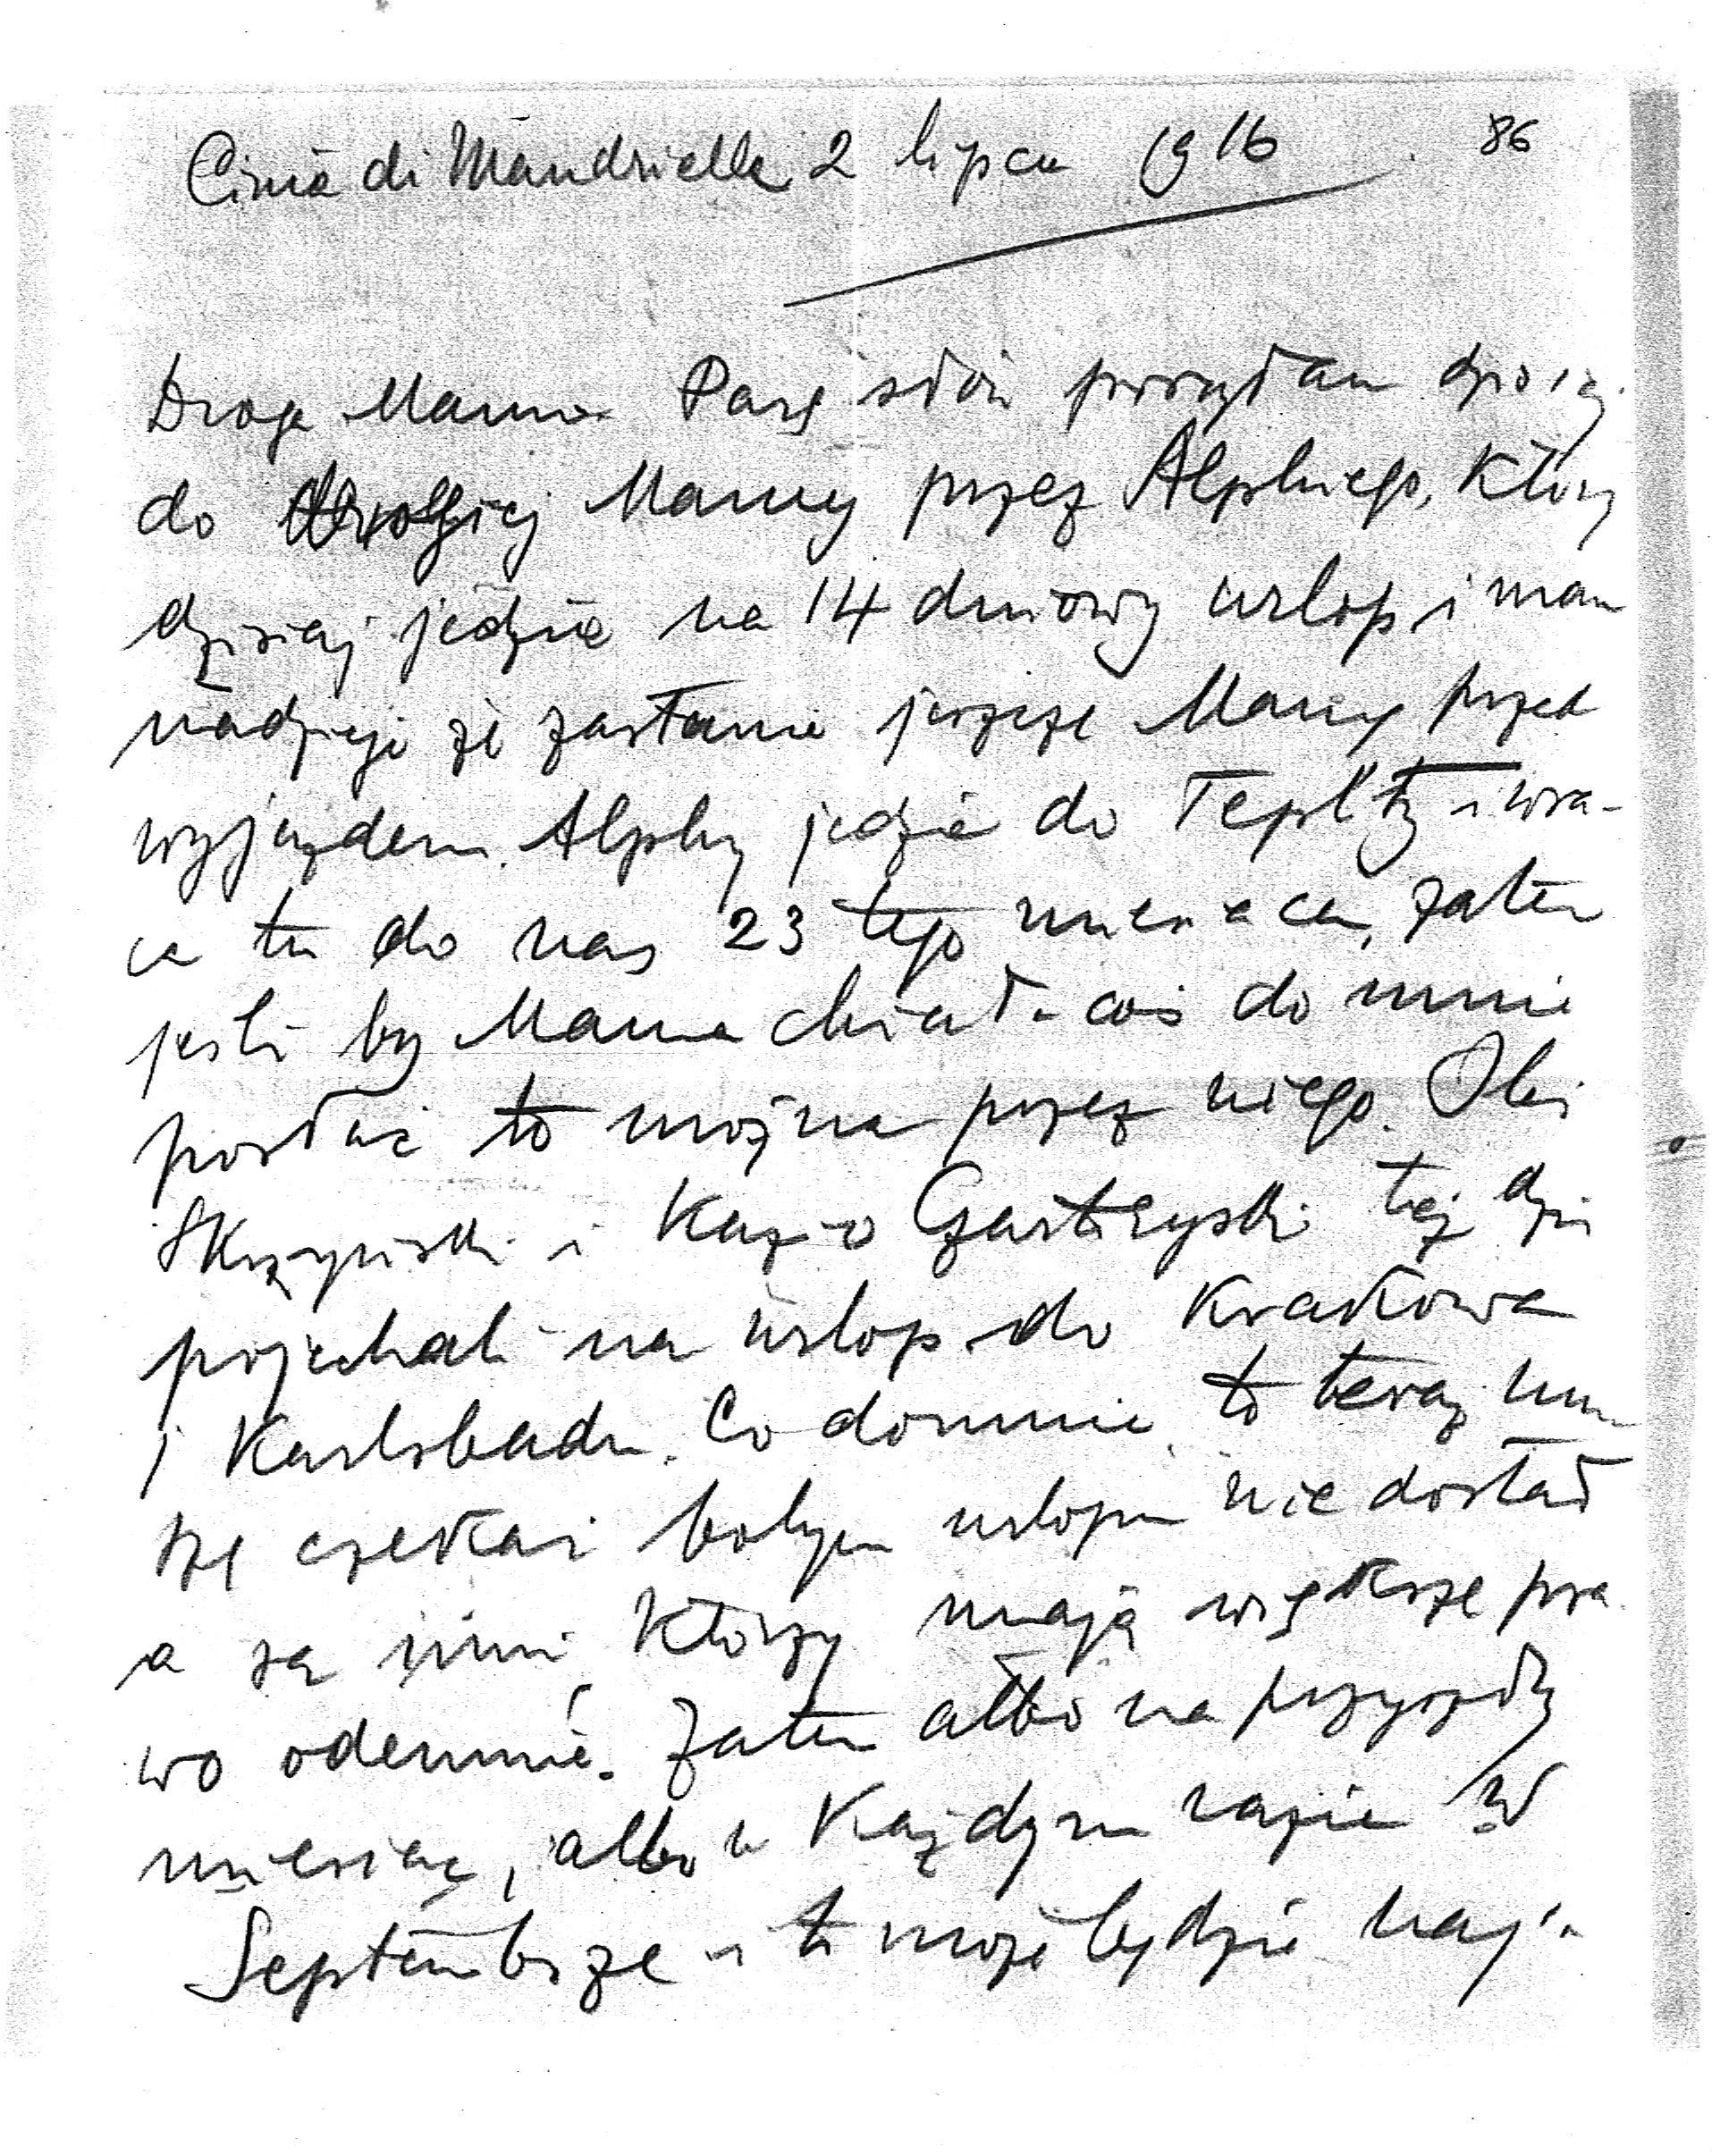 Cima di Mandrielle 2 lipca 1916 86
Droga Mamo Parę słów posyłam dzisiaj
do drogiej Mamy przez Alpskiego, który
dzisiaj jedzie na 14 dniowy urlop i mam
nadzieję że zastanie jeszcze Mamę przed
wyjazdem. Alpsky jedzie do Teplitz i wra-
ca tu do nas 23 tego miesiąca, zatem
jeśli by Mama chciała coś do mnie
posłać to można przez niego. Oleś
Skrzyński i Kazio Czartoryski też dziś
pojechali na urlop do Krakowa
i Karlsbadu. Co do mnie to teraz mu
szę czekać bo tym urlopu nie dostał
a są inni którzy mają większe pra
wo odemnie. Zatem albo na przyszły
miesiąc, albo w każdym razie w
Septembrze i to może będzie naj-